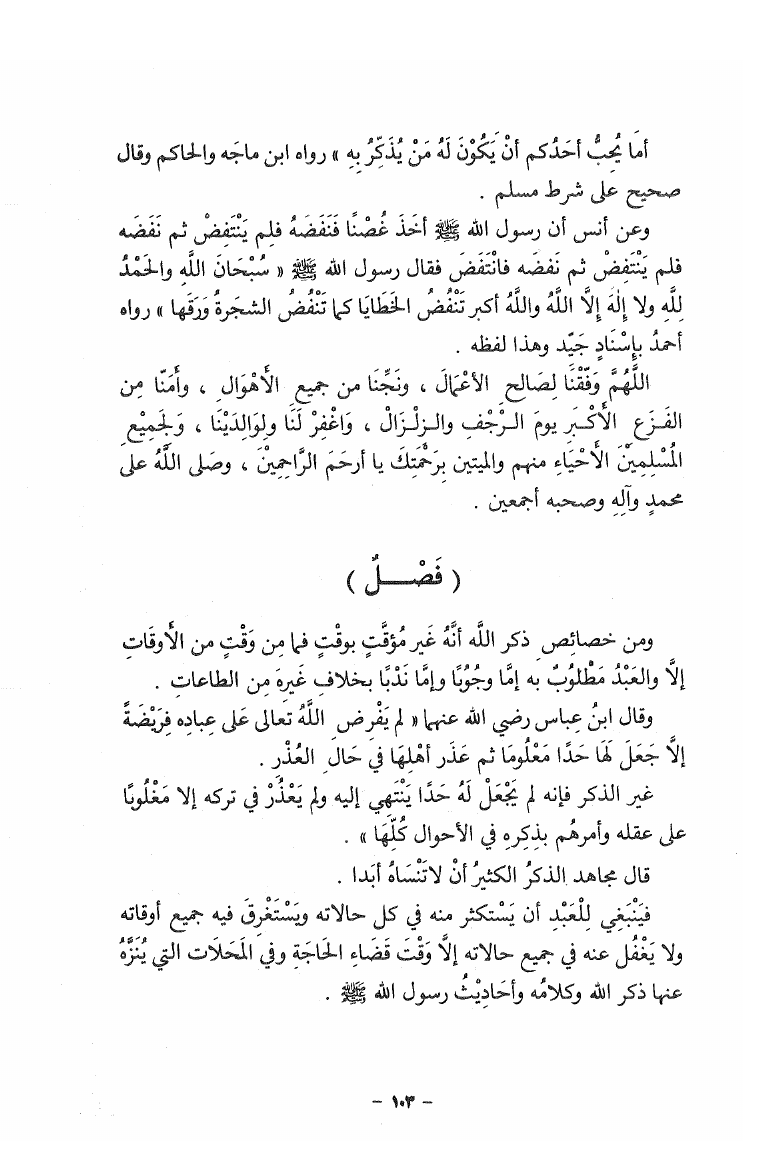 أمَا يُحِبُّ أحَدُكم أنْ يَكُوْنَ لَهُ مَنْ يُذَكِّرُ بِهِ » رواه ابن ماجَه والحاكم وقال
صحيح على شرط مسلم .
وعن أنس أن رسول الله ﷺ أخَذَ غُصْنًا فَنَفَضَهُ فلِم يَنْتَفِضْ ثم نَفَضَه
فلم يَنْتَفِضْ ثم نَفضَه فانْتَفَضَ فقال رسول الله ﷺ « سُبْحَانَ اللَّه والحَمْدُ
للَّهِ ولا إلٰهَ إلَّا اللَّهُ واللَّهُ أكبر تَنْفُضُ الخَطَايَا كما تَنْفُضُ الشجرةُ وَرَقَها » رواه
أحمدُ بإسْنَادٍ جَيِّد وهذا لفظه .
اللَّهُمَّ وَفِّقْنَا لِصَالحِ الأعْمَالَ ، ونَجِّنَا من جميعِ الأَهْوَالِ ، وأمَنّا مِن
الفَـزَعِ الأَكْـبَرِ يومَ الـرَّجْفِ والـزِلْـزَالْ ، وَاغْفِرْ لَنَا ولِوَالِدَيْنَا ، وَلِجَمِيْعِ
المُسْلِمِيْنَ الأَحْيَاءِ منهم والميتين بِرَحْمَتِكَ يا أرحَمَ الرَّاحِمِيْنَ ، وصَلى اللَّهُ على
محمدٍ وآلِهِ وصحبه أجمعين .
( فَصْـــلٌ )
ومن خصائصِ ذكر اللَّه أنَّهُ غَير مُؤقَّتٍ بوقْتٍ فما مِن وَقْتٍ من الأَوقَاتِ
إلَّا والعَبْدُ مَطْلوُبٌ به إمَّا وجُوبًا وإمَّا نَدْبًا بخلافِ غَيرهَ مِن الطاعاتِ .
وقال ابنُ عِباس رضي الله عنهما « لم يَفْرِضِ اللَّهُ تعالى عَلى عِبادِه فَرِيْضَةً
إلَّا جَعَلَ لهَا حَدًا مَعْلُومًا ثم عَذَر أهْلِهَا فِي حَالِ العُذْرِ .
غير الذكر فإنه لم يَجْعَلْ لَهُ حَدًا يَنْتَهِي إليه ولم يَعْذُرْ في تركه إلا مَغْلُوبًا
على عقله وأمرهُم بذِكرِه في الأحوال كُلِّهَا » .
قال مجاهد الذكرُ الكثيرُ أنْ لاتَنْسَاهُ أبَدا .
فيَنْبَغِي لِلْعَبْدِ أن يَسْتكثر منه في كل حالاته ويَسْتَغْرِقَ فيه جميع أوقاته
ولا يَغْفُل عنه في جميع حالاته إلَّا وَقْتَ قَضَاءِ الحَاجَةِ وفي المَحَلات التي يُنَزَّهُ
عنها ذكر الله وكلامُه وأحَادِيْثُ رسول الله ﷺ .
- ١٠٣ -